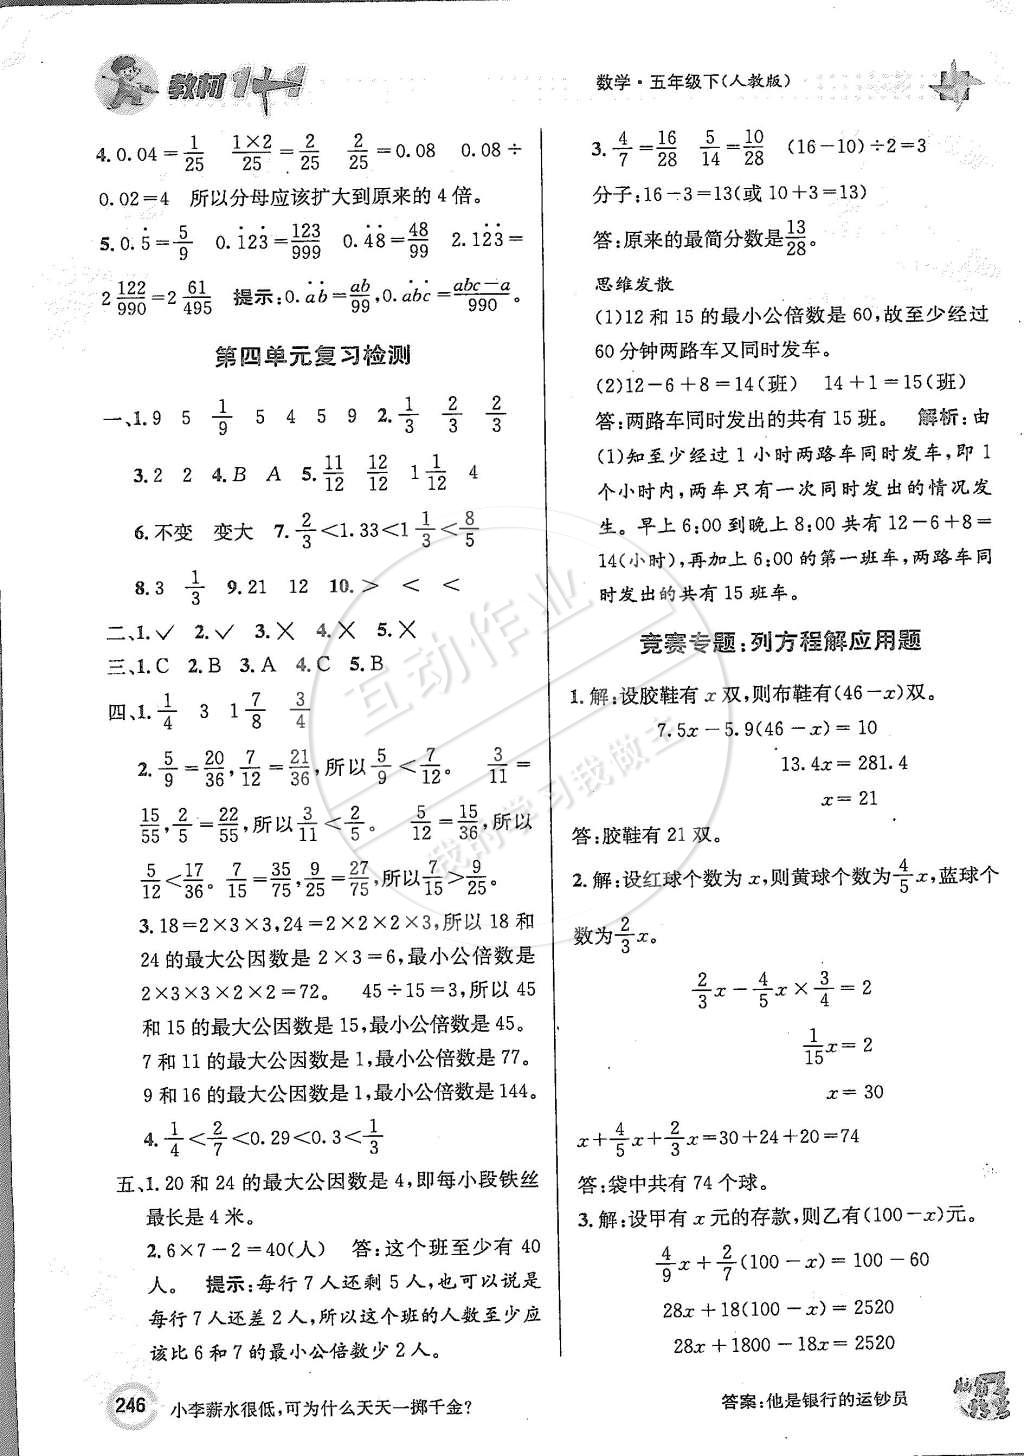 教材1+1
数学·五年级下(人教版)
4. 0.04=1/25 1×2/25=2/25 2/25=0.08 0.08÷
0.02=4 所以分母应该扩大到原来的4倍。
5. 0.5̇=5/9 0.1̇23̇=123/999 0.4̇8̇=48/99 2.12̇3̇=
2 122/990=2 61/495 提示:0.ȧḃ=ab/99,0.aḃċ=abc-a/990。
第四单元复习检测
一、1. 9 5 1/9 5 4 5 9 2. 1/3 2/3 2/3
3. 2 2 4. B A 5. 11/12 12/12 1 1/12 4
6. 不变 变大 7. 2/3<1.33<1 1/3<8/5
8. 3 1/3 9. 21 12 10. > < <
二、1. ✓ 2. ✓ 3. × 4. × 5. ×
三、1. C 2. B 3. A 4. C 5. B
四、1. 1/4 3 1 7/8 3/4
2. 5/9=20/36,7/12=21/36,所以5/9<7/12。 3/11=
15/55,2/5=22/55,所以3/11<2/5。 5/12=15/36,所以
5/12<17/36。 7/15=35/75,9/25=27/75,所以7/15>9/25。
3. 18=2×3×3,24=2×2×2×3,所以18和
24的最大公因数是2×3=6,最小公倍数是
2×3×3×2×2=72。 45÷15=3,所以45
和15的最大公因数是15,最小公倍数是45。
7和11的最大公因数是1,最小公倍数是77。
9和16的最大公因数是1,最小公倍数是144。
4. 1/4<2/7<0.29<0.3<1/3
五、1. 20和24的最大公因数是4,即每小段铁丝
最长是4米。
2. 6×7-2=40(人) 答:这个班至少有40
人。 提示:每行7人还剩5人,也可以说是
每行7人还差2人,所以这个班的人数至少应
该比6和7的最小公倍数少2人。
3. 4/7=16/28 5/14=10/28 (16-10)÷2=3
分子:16-3=13(或10+3=13)
答:原来的最简分数是13/28。
思维发散
(1)12和15的最小公倍数是60,故至少经过
60分钟两路车又同时发车。
(2)12-6+8=14(班) 14+1=15(班)
答:两路车同时发出的共有15班。 解析:由
(1)知至少经过1小时两路车同时发车,即1
个小时内,两车只有一次同时发出的情况发
生。早上6:00到晚上8:00共有12-6+8=
14(小时),再加上6:00的第一班车,两路车同
时发出的共有15班车。
竞赛专题:列方程解应用题
1. 解:设胶鞋有x双,则布鞋有(46-x)双。
7.5x-5.9(46-x)=10
13.4x=281.4
x=21
答:胶鞋有21双。
2. 解:设红球个数为x,则黄球个数为4/5x,蓝球个
数为2/3x。
2/3x-4/5x×3/4=2
1/15x=2
x=30
x+4/5x+2/3x=30+24+20=74
答:袋中共有74个球。
3. 解:设甲有x元的存款,则乙有(100-x)元。
4/9x+2/7(100-x)=100-60
28x+18(100-x)=2520
28x+1800-18x=2520
互动作业
我的学习我做主
246
小李薪水很低,可为什么天天一掷千金?
答案:他是银行的运钞员